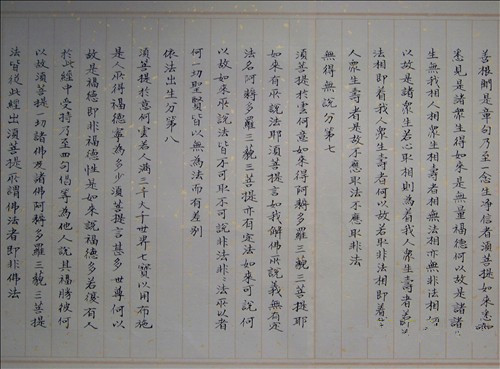 善根聞是章句乃至一念生淨信者須菩提如來悉知
悉見是諸眾生得如來是無量福德何以故是諸
生無我相人相眾生相壽者相無法相亦無非法相
以故是諸眾生若心取相則為着我人眾生壽者若
法相即着我人眾生壽者何以故若取非法相即着
人眾生壽者是故不應取法不應取非法
無得無說分第七
須菩提於云何意如來得阿耨多羅三藐三菩提耶
如來有所說法耶須菩提言如我解佛所說義無有定
法名阿耨多羅三藐三菩提亦有定法如來可說何
以故如來所說法皆不可取不可說非法非非法所以者
何一切聖賢皆以無為法而有差別
依法出生分第八
須菩提於意何雲若人滿三千大千世界七寶以用布施
是人所得福德寧為多少須菩提言甚多世尊何以
故是福德即非福德性是如來說福德多若復有人
於此經中受持乃至四句偈等為他人說其福勝彼何
以故須菩提一切諸佛及諸佛阿耨多羅三藐三菩提
法皆從此經出須菩提所謂佛法者即非佛法